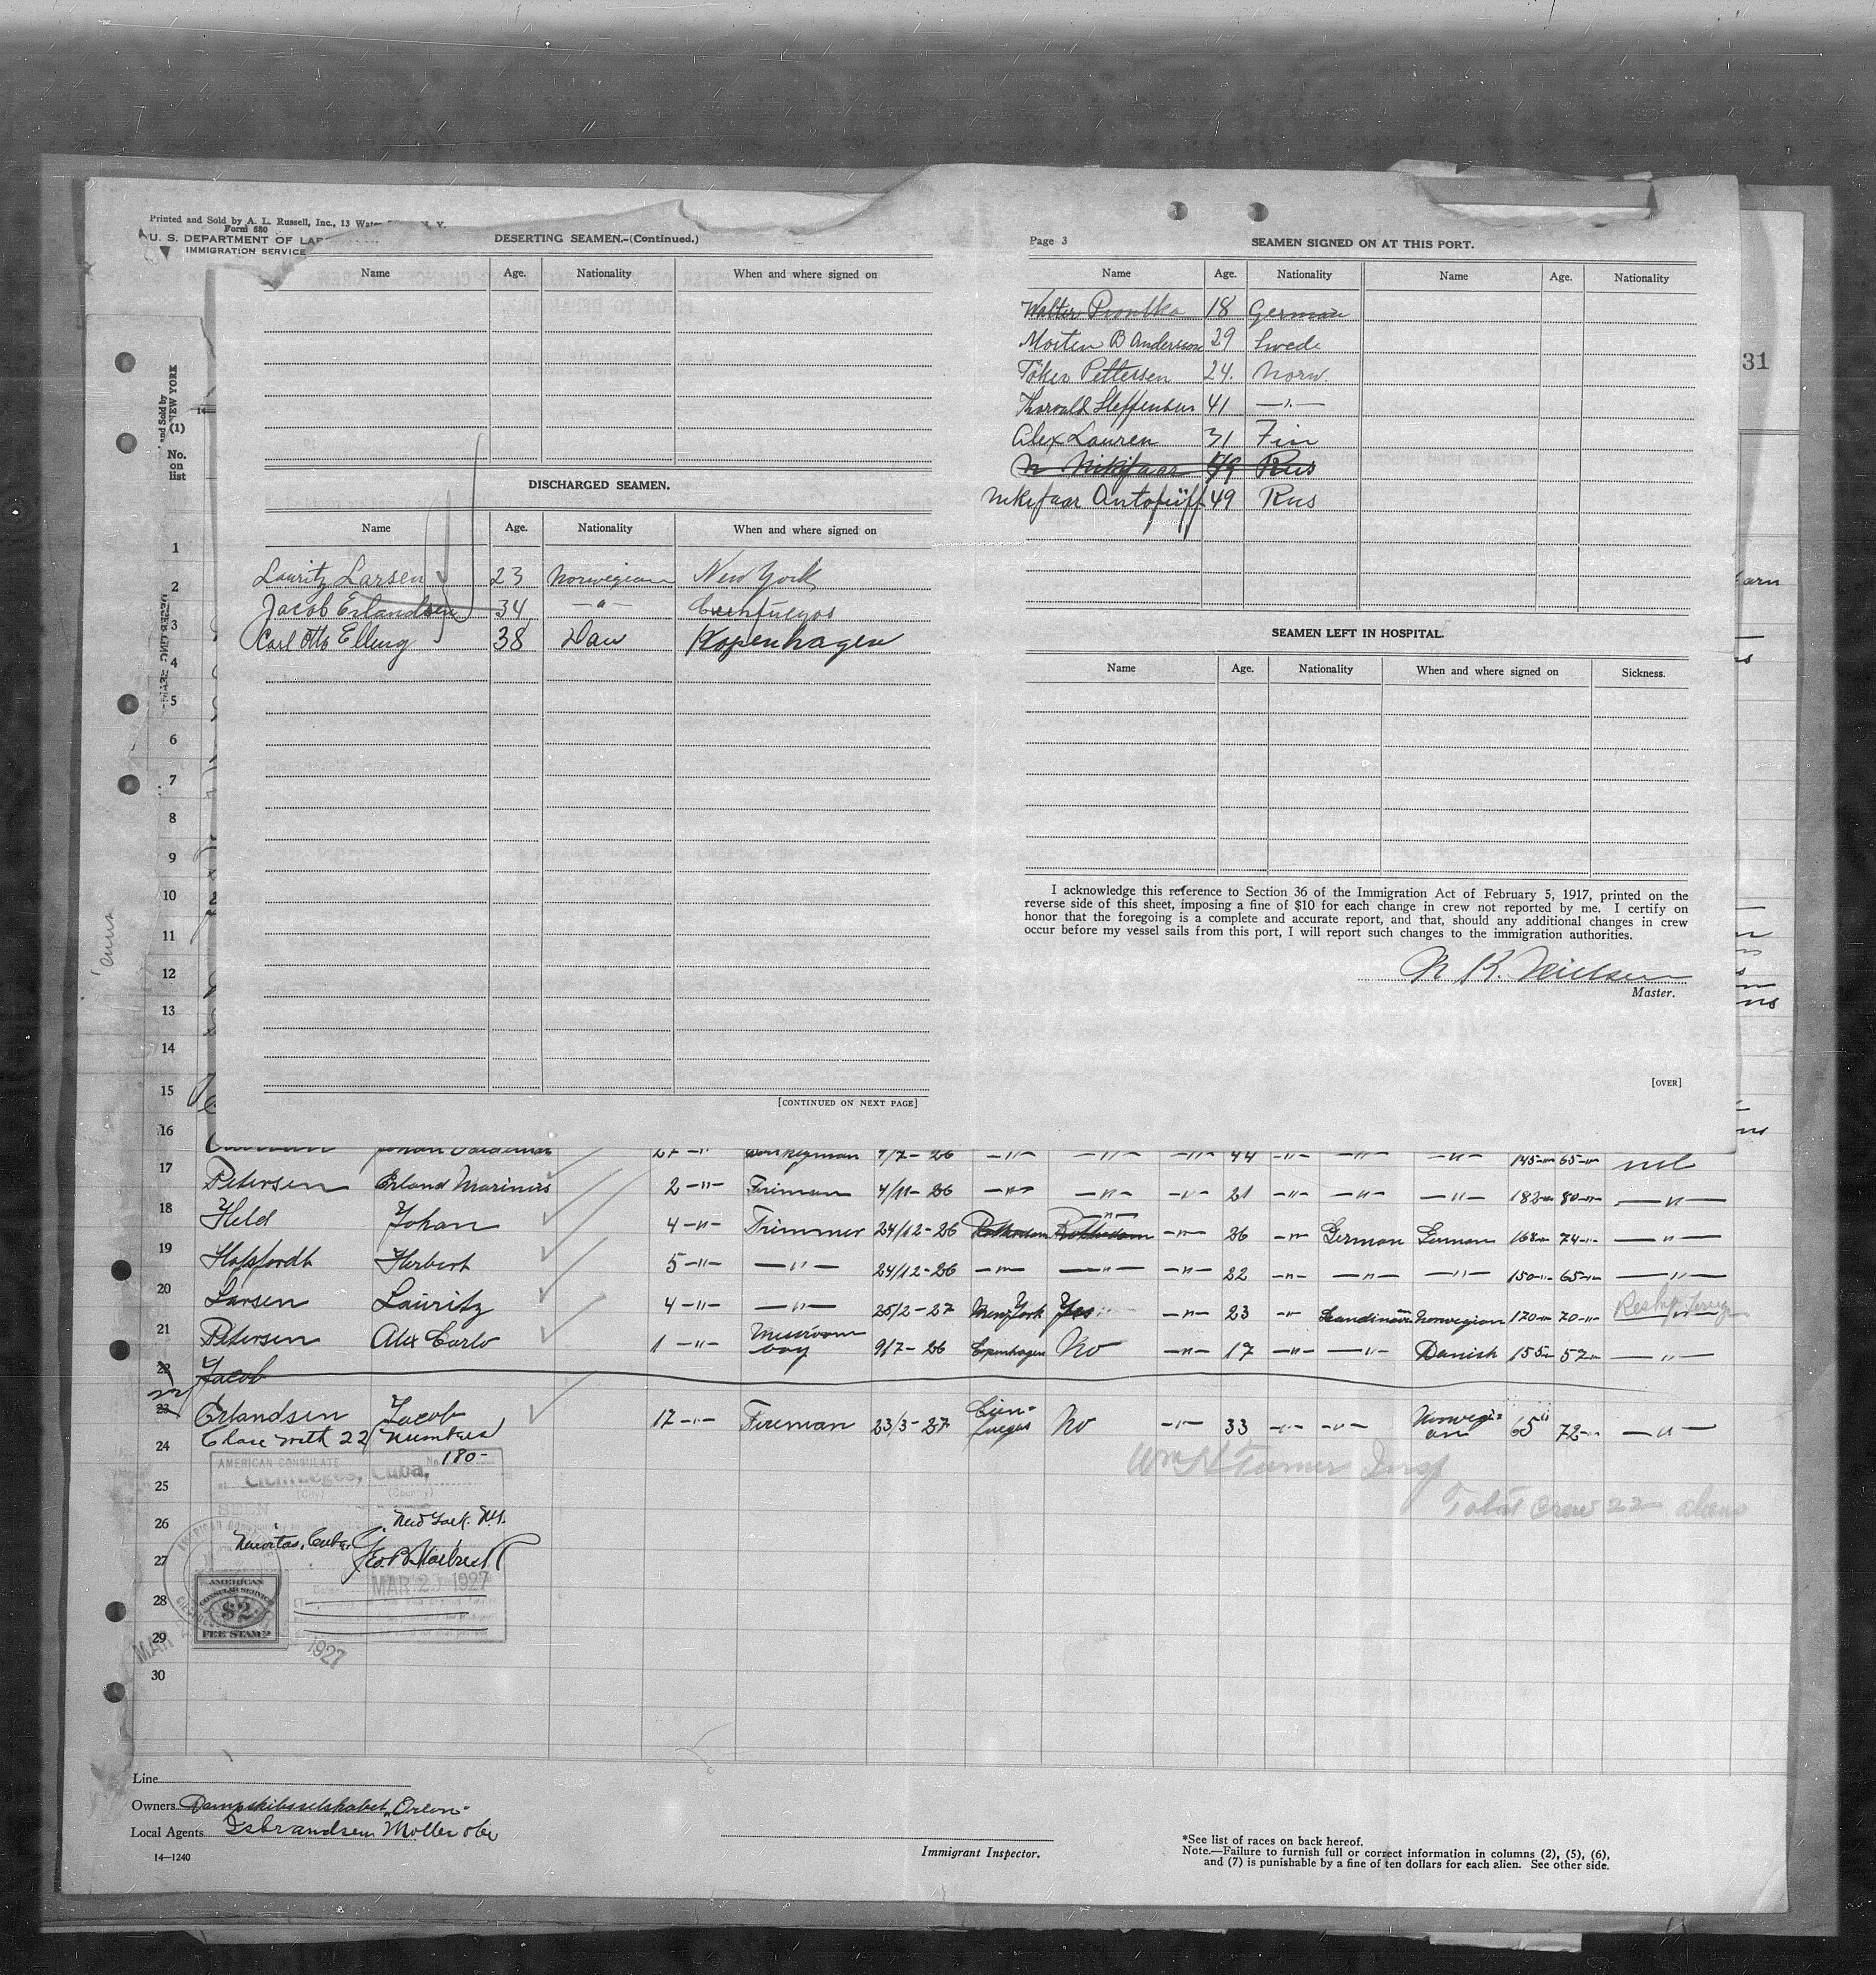 Printed and Sold by A. L. Russell, Inc., 13 Water
Form 680
U. S. DEPARTMENT OF
IMMIGRATION SERVICE
DESERTING SEAMEN.-(Continued.)
Name Age. Nationality When and where signed on
DISCHARGED SEAMEN.
Name Age. Nationality When and where signed on
Lauritz Larsen 23 Norwegian New York
Jacob Erlandsen 34 —"— Cienfuegos
Carl Otto Elling 38 Dan Kopenhagen
[CONTINUED ON NEXT PAGE]
Page 3 SEAMEN SIGNED ON AT THIS PORT.
Name Age. Nationality Name Age. Nationality
Walter 18 German
Morten B Anderson 29 Swede
Pettersen 24. Norw.
Thorvald Steffensen 41 —"—
Alex Lauren 31 Fin
N Nikifaar 49 Rus
Nikifaar 49 Rus
SEAMEN LEFT IN HOSPITAL.
Name Age. Nationality When and where signed on Sickness.
I acknowledge this reference to Section 36 of the Immigration Act of February 5, 1917, printed on the
reverse side of this sheet, imposing a fine of $10 for each change in crew not reported by me. I certify on
honor that the foregoing is a complete and accurate report, and that, should any additional changes in crew
occur before my vessel sails from this port, I will report such changes to the immigration authorities.
N R. Nielsen
Master.
[OVER]
31
and Sold by
NEW YORK
(1)
No.
on
list
1
2
3
4
5
6
7
8
9
10
11
12
13
14
15
16 Johan Valdemar 27 —"— Donkeyman 7/7-26 —"— —"— —"— 44 —"— —"— —"— 145 —"— 65 —"— nil
17 Petersen Erland Marinus 2 —"— Fireman 4/11-26 —"— —"— —"— 21 —"— —"— —"— 182 —"— 80 —"— —"—
18 Held Johan 4 —"— Trimmer 24/12-26 Rotterdam Rotterdam —"— —"— 26 —"— German German 168 —"— 74 —"— —"—
19 Herbert 5 —"— —"— 24/12-26 —"— —"— —"— 22 —"— —"— —"— 150 —"— 65 —"— —"—
20 Larsen Lauritz 4 —"— —"— 25/2-27 New York Yes. —"— 23 —"— Scandinavian Norwegian 170 —"— 70 —"— —"—
21 Petersen Alex Carlo 1 —"— Messroom boy 9/7-26 Copenhagen No —"— 17 —"— —"— Danish 155 —"— 57 —"— —"—
22 Jacob
22
23 Erlandsen Jacob 17 —"— Fireman 23/3-27 Cien-fuegos No —"— 33 —"— —"— Norwegian 65" 72 —"— —"—
Close with 22 Numbers
24
25
26
27
28
29
30
Wm H Turner Insp
Total Crew 22 aliens
AMERICAN CONSULATE
No. 180-
at Cienfuegos, Cuba,
(City) (Country)
SEEN
New York. N.Y.
Nuevitas, Cuba,
MAR 1927
AMERICAN
CONSULAR SERVICE
$2.
FEE STAMP
MAR 1927
Line
Owners Dampskibsselskabet "Orion"
Local Agents Isbrandsen Moller
14—1240
Immigrant Inspector.
*See list of races on back hereof.
Note.—Failure to furnish full or correct information in columns (2), (5), (6),
and (7) is punishable by a fine of ten dollars for each alien. See other side.